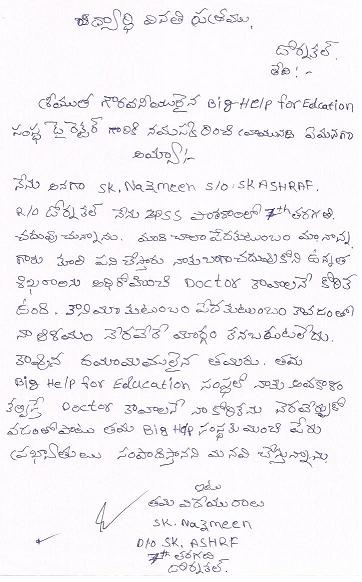 విద్యార్థి వినతి పత్రము.
డోర్నకల్.
తేది :-
శ్రీయుత గౌరవనీయులైన Big-HElp for Edcation
సంస్థ డైరెక్టర్ గారికి నమస్కరించి వ్రాయునది ఏమనగా
అయ్యా!-
నేను అనగా SK, Nazmeen S/o: SK ASHRAF.
R/O డోర్నకల్ నేను ZPSS పాఠశాలలో 7th తరగతి
చదువుచున్నాను. మాది చాలా పేదకుటుంబం మా నాన్న
గారు కూలి పని చేస్తారు నాకు బాగా చదువుకొని ఉన్నత
శిఖరాలను అధిరోహించి Doctor కావాలనే కోరిక
ఉంది. కానీ మా కుటుంబం పేదకుటుంబం కావడంతో
నా ఆశయం నెరవేరే మార్గం కనబడుటలేదు.
కావున దయామయులైన తమరు. తమ
Big Help for Education సంస్థలో నాకు అవకాశం
కల్పిస్తే Doctor కావాలనే నా కోరికను నెరవేర్చుకో
వడంతోపాటు తమ Big Help సంస్థకు మంచి పేరు
ప్రఖ్యాతులు సంపాదిస్తానని మనవి చేస్తున్నాను.
ఇట్లు
తమ విధేయురాలు
SK. Nazmeen
D/O SK. ASHRF
7th తరగతి
డోర్నకల్.